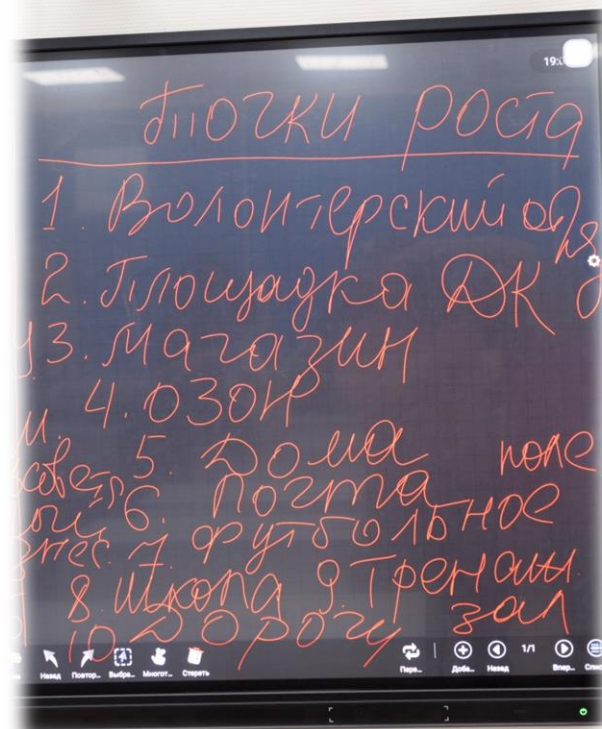 19:
Точки роста
1. Волонтерский
2. Площадка ДК
3. Магазин
4. ОЗОН
5. Дома
6. Почта
7. футбольное поле
8. Школа 9. Тренаж. зал
10 Дорогу
Назад Повтор... Выбра... Многот... Стереть Пере... Доба... Назад 1/1 Впер... Спис